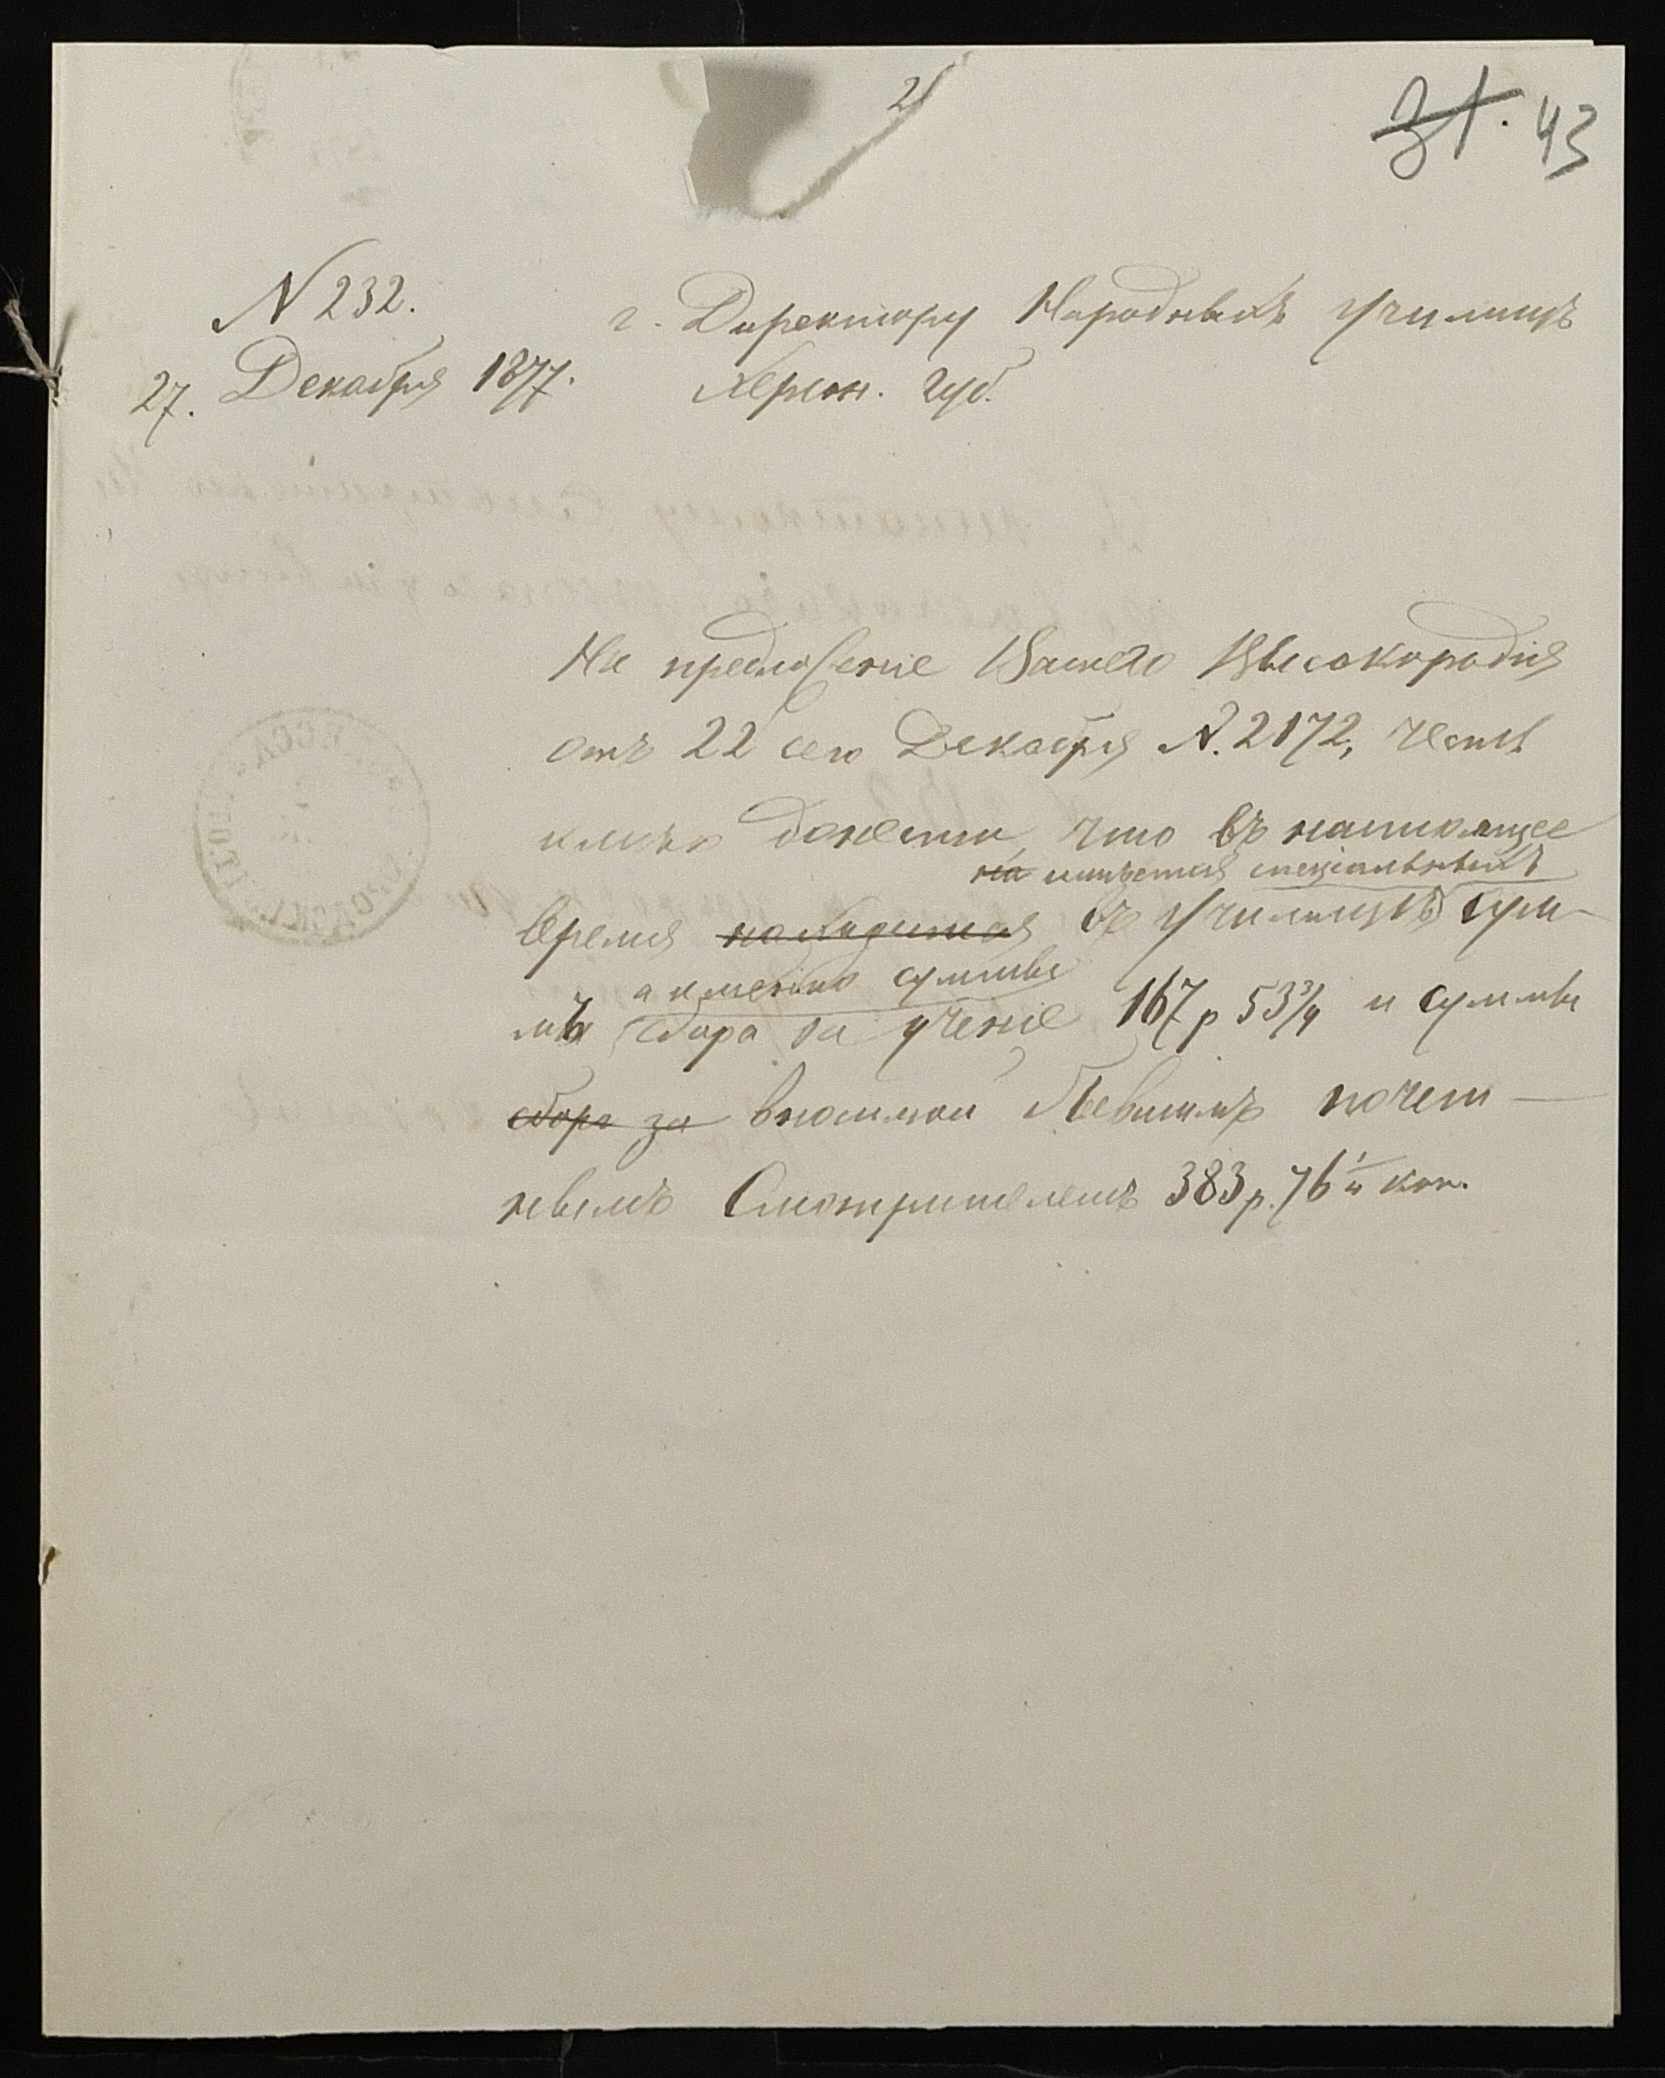 21
31. 43
N 232.
27. Декабря 1877.
г. Директору Народныхъ Училищъ
Херсон. Губ.
На предложеніе Вашего Высокородія
отъ 22 сего Декабря N. 2172, честь
имѣю донести, что въ настоящее
на имѣется спеціальныхъ
время находится въ Училищѣ сум-
а именно суммы
мъ сбора за ученіе 167 р 53 3/4 и суммы
сбора за вносимой бывшимъ почет-
нымъ Смотрителемъ 383 р. 76 1/4 коп.